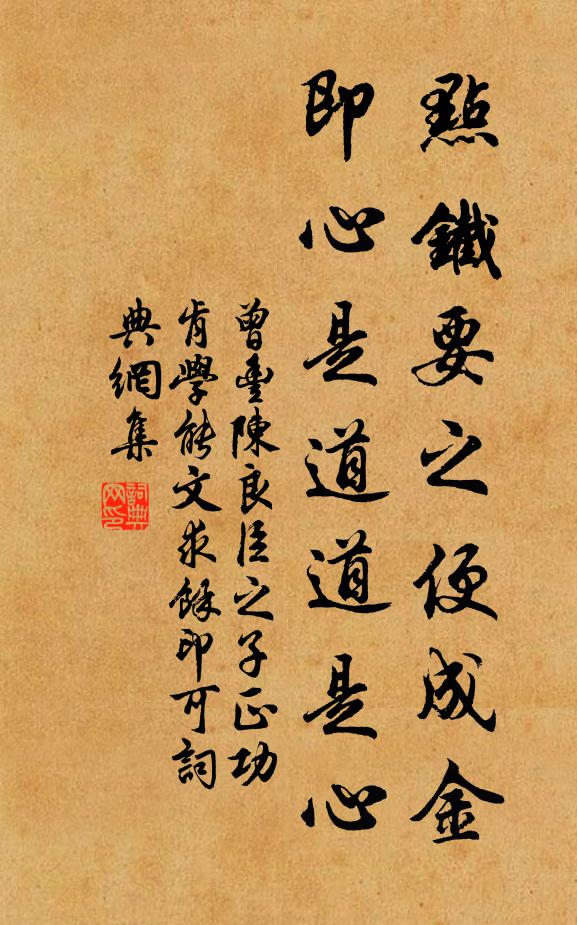 點鐵要之便成金
即心是道道是心
曾豊陳良臣之子正功
肯學能文求餘印可詞
典網集
詞典網印